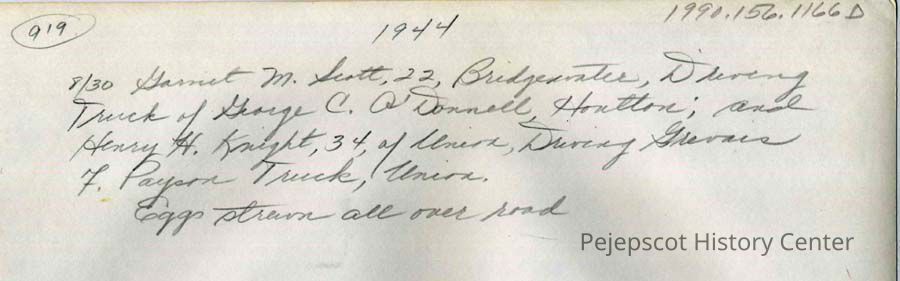 919
1944
1990.156.1166D
8/30 Garnet M. Scott, 22, Bridgewater, Driving
Truck of George C. O'Donnell, Houlton; and
Henry H. Knight, 34, of Union, Driving
F. Payson Truck, Union.
Eggs strewn all over road
Pejepscot History Center